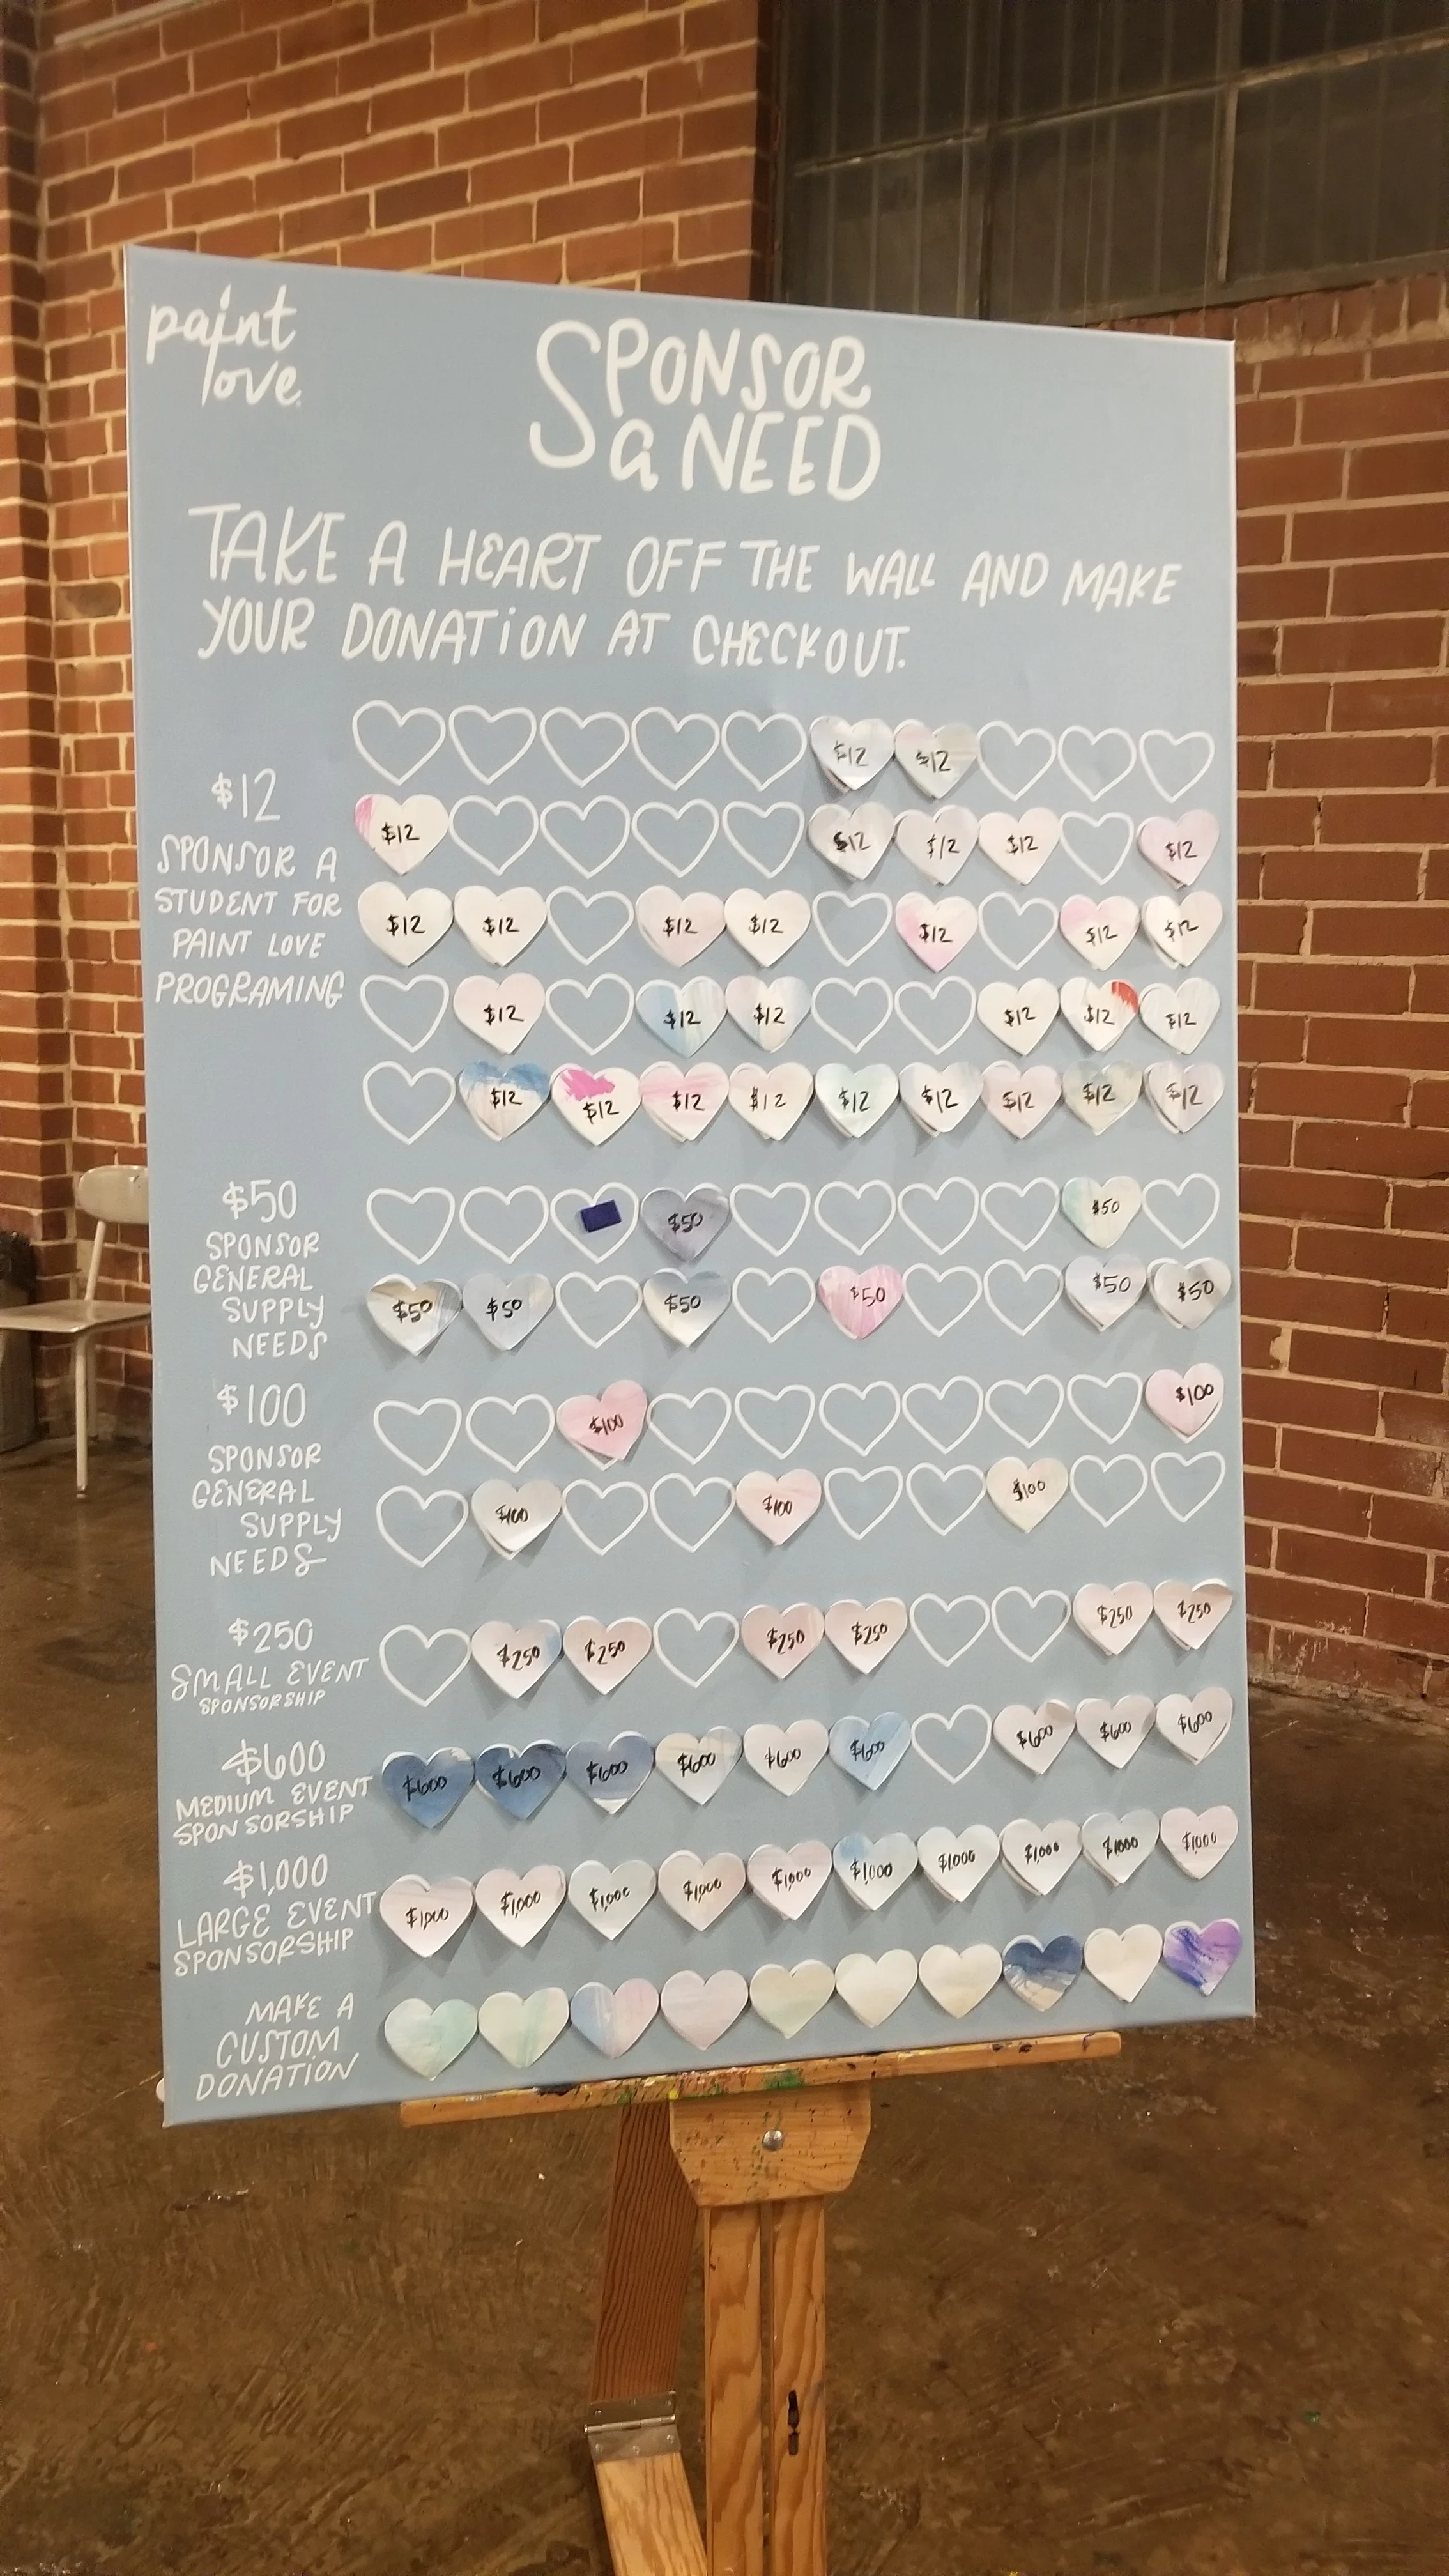 paint
love
SPONSOR
a NEED
TAKE A HEART OFF THE WALL AND MAKE
YOUR DONATION AT CHECKOUT.
$12
SPONSOR A
STUDENT FOR
PAINT LOVE
PROGRAMING
$12 $12
$12 $12 $12 $12 $12
$12 $12 $12 $12 $12 $12 $12
$12 $12 $12 $12 $12 $12
$12 $12 $12 $12 $12 $12 $12 $12 $12
$50
SPONSOR
GENERAL
SUPPLY
NEEDS
$50 $50
$50 $50 $50 $50 $50 $50
$100
SPONSOR
GENERAL
SUPPLY
NEEDS
$100 $100
$100 $100 $100
$250
SMALL EVENT
SPONSORSHIP
$250 $250 $250 $250 $250 $250
$600
MEDIUM EVENT
SPONSORSHIP
$600 $600 $600 $600 $600 $600 $600 $600 $600
$1,000
LARGE EVENT
SPONSORSHIP
$1,000 $1,000 $1,000 $1,000 $1,000 $1,000 $1,000 $1,000 $1000 $1,000
MAKE A
CUSTOM
DONATION